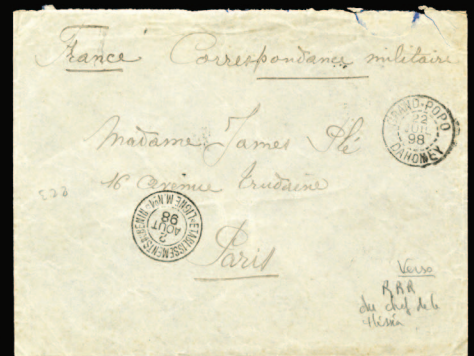 France Correspondance militaire
GRAND-POPO
22
JUIL
98
DAHOMEY
Madame James Plé
16 avenue Trudaine
LIGNE M. Nº4
2
AOUT
98
Paris
Verso
RRR
du chef de la